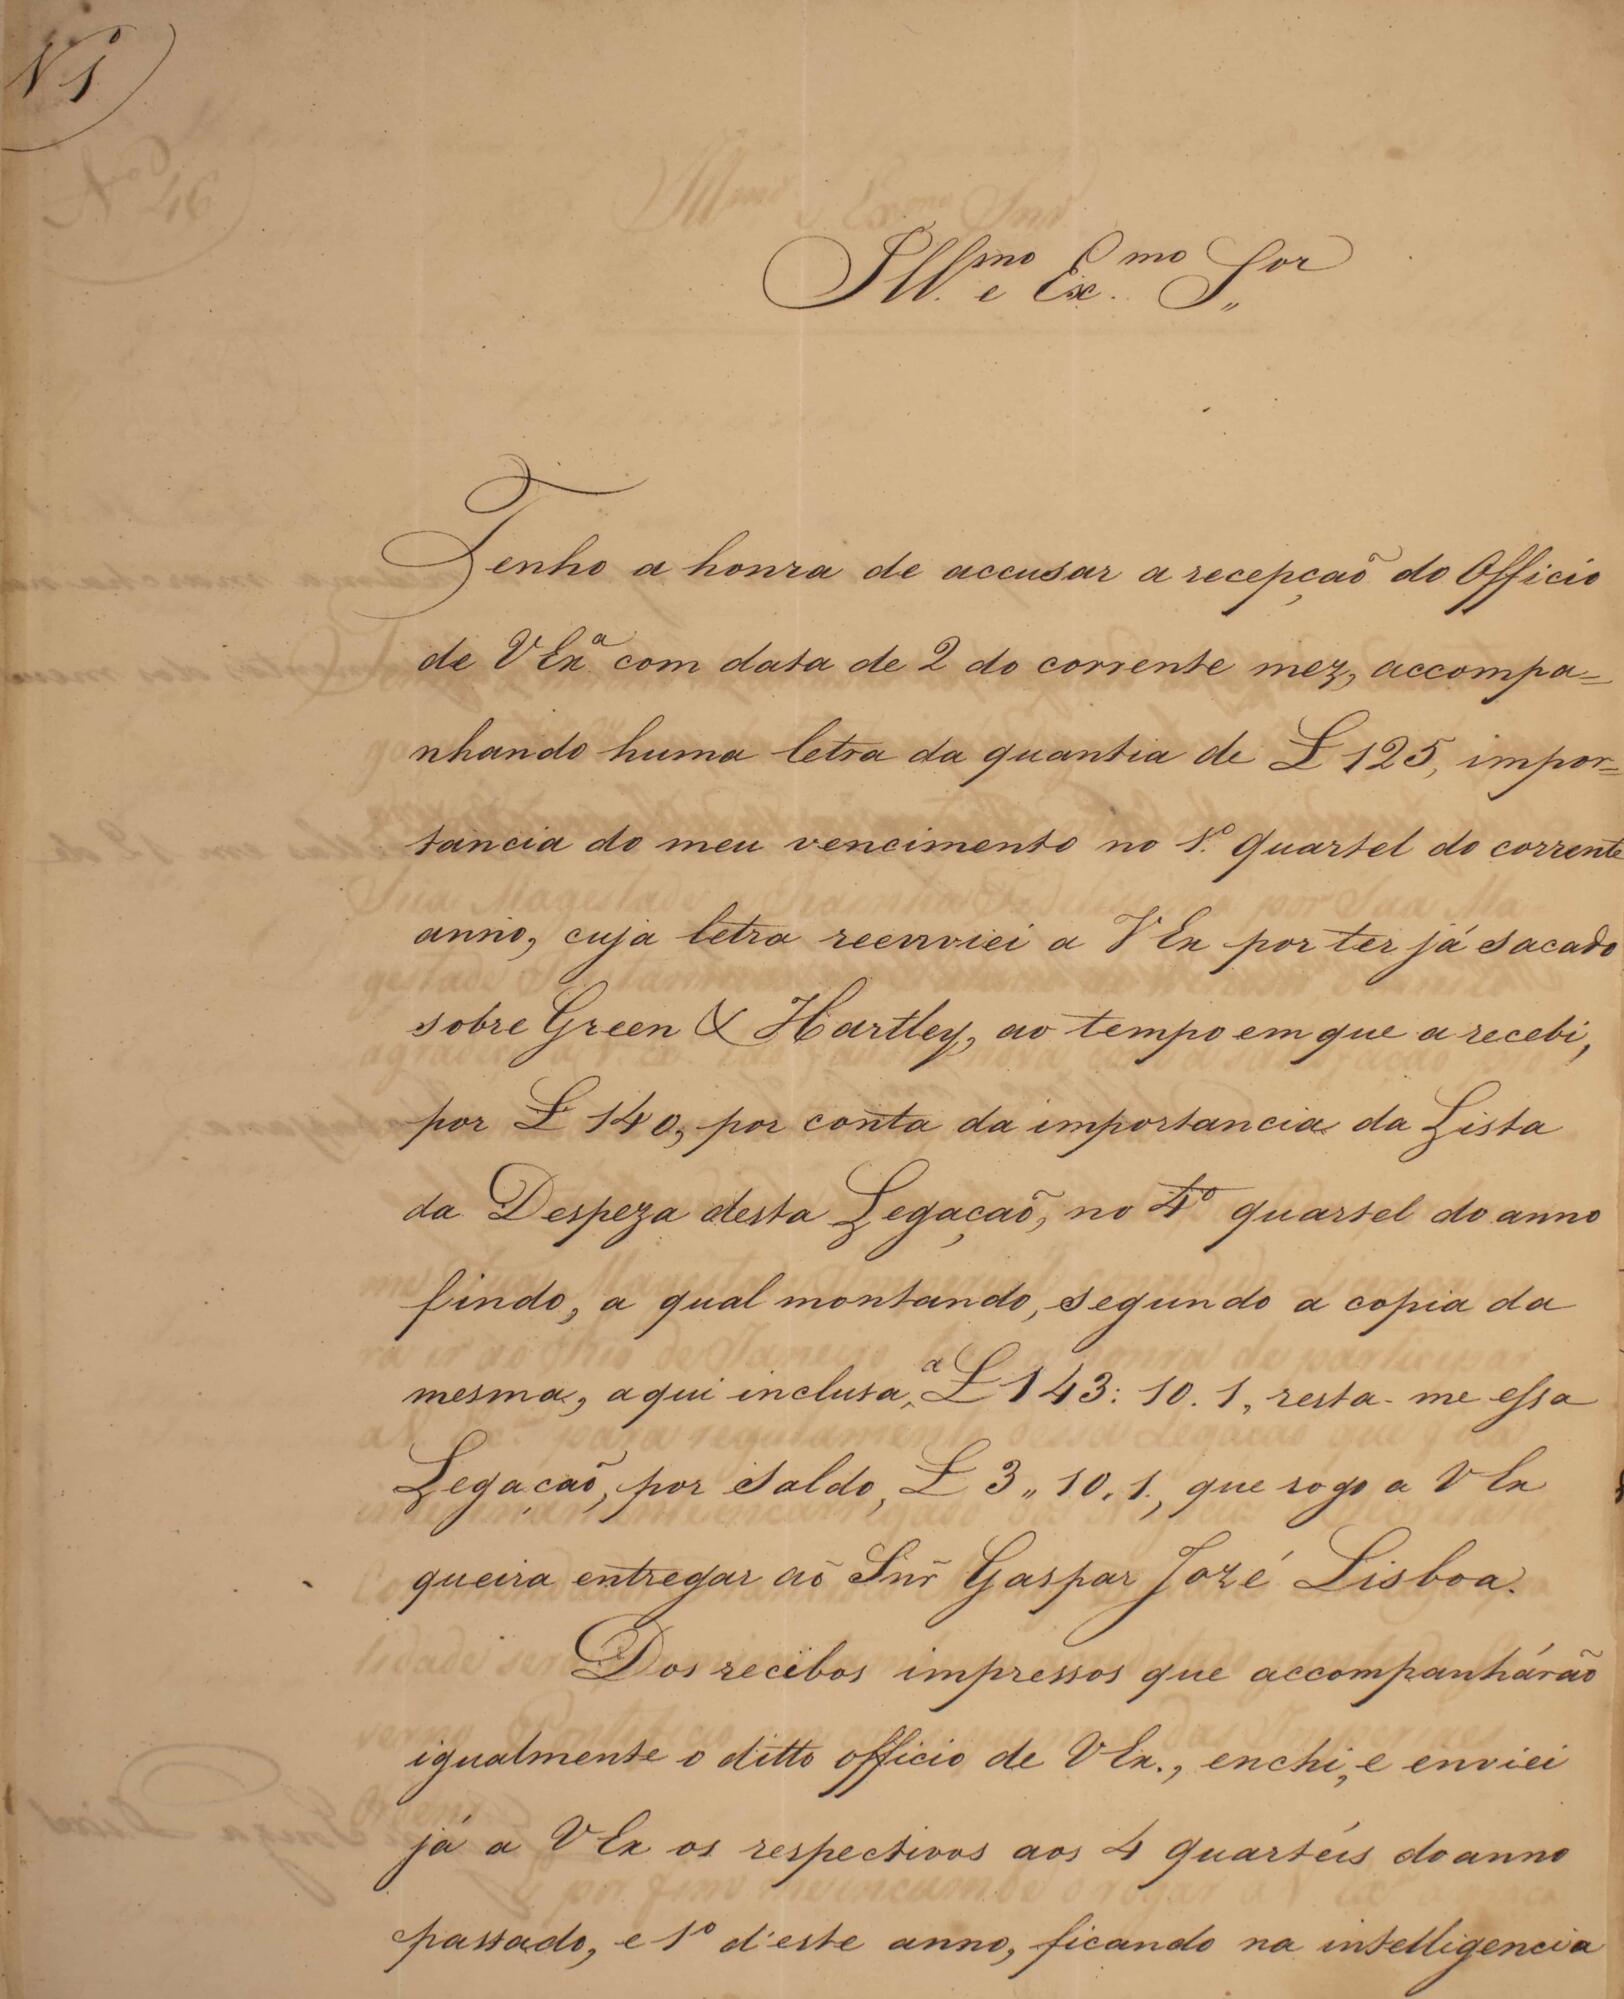 Nº 1
Illmo e Exmo Sor
Tenho a honra de accusar a recepçaõ do Officio
de VExª com data de 2 do corrente mez, accompa=
nhando huma letra da quantia de £ 125, impor=
tancia do meu vencimento no 1º quartel do corrente
anno, cuja letra reenviei a VEx por ter já sacado
sobre Green & Hartley, ao tempo em que a recebi,
por £ 140, por conta da importancia da Lista
da Despeza desta Legaçaõ, no 4º quartel do anno
findo, a qual montando, segundo a copia da
mesma, aqui inclusa, a £ 143: 10. 1, resta-me essa
Legaçaõ, por saldo, £ 3,, 10. 1., que rogo a VEx
queira entregar aõ Snr̃ Gaspar Jozé Lisboa.
Dos recibos impressos que accompanhárão
igualmente o ditto officio de VEx., enchi, e enviei
já a VEx os respectivos aos 4 quartéis do anno
passado, e 1º d'este anno, ficando na intelligencia